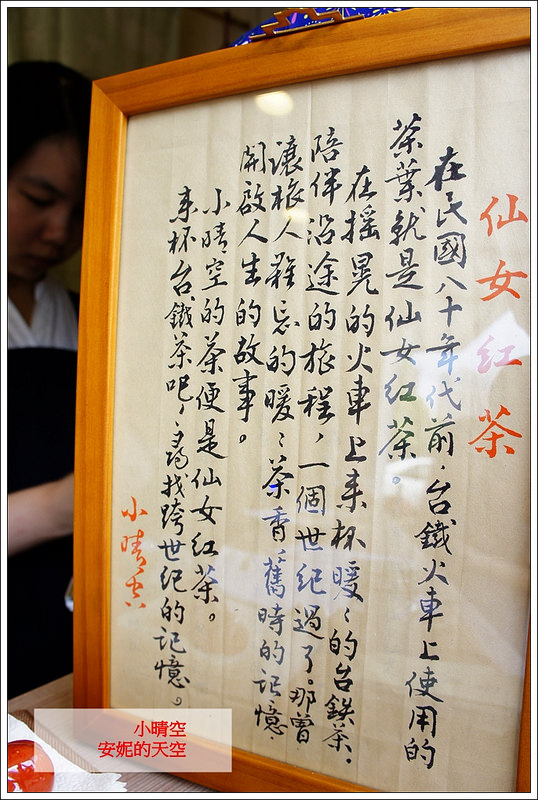 仙女红茶
在民國八十年代前，台鐵火車上使用的
茶葉就是仙女红茶。
在摇晃的火車上来杯暖々的台鉄茶。
陪伴沿途的旅程，一個世纪過了。那曾
讓旅人難忘的暖々茶香，舊時的记憶，
開啟人生的故事。
小晴空的茶便是仙女红茶。
来杯台鐵茶吧，尋找跨世纪的记憶。
小晴空
小晴空
安妮的天空